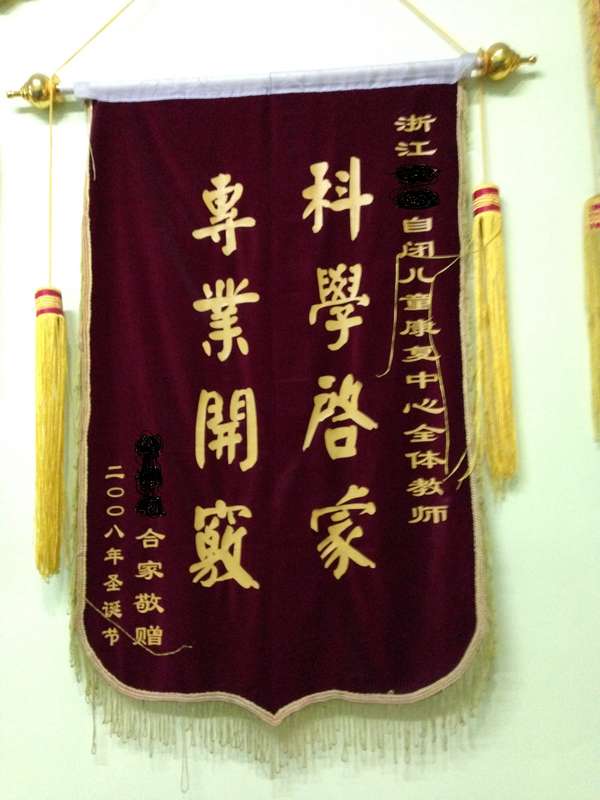 浙江自闭儿童康复中心全体教师
科學啓蒙
專業開竅
合家敬赠
二〇〇八年圣诞节